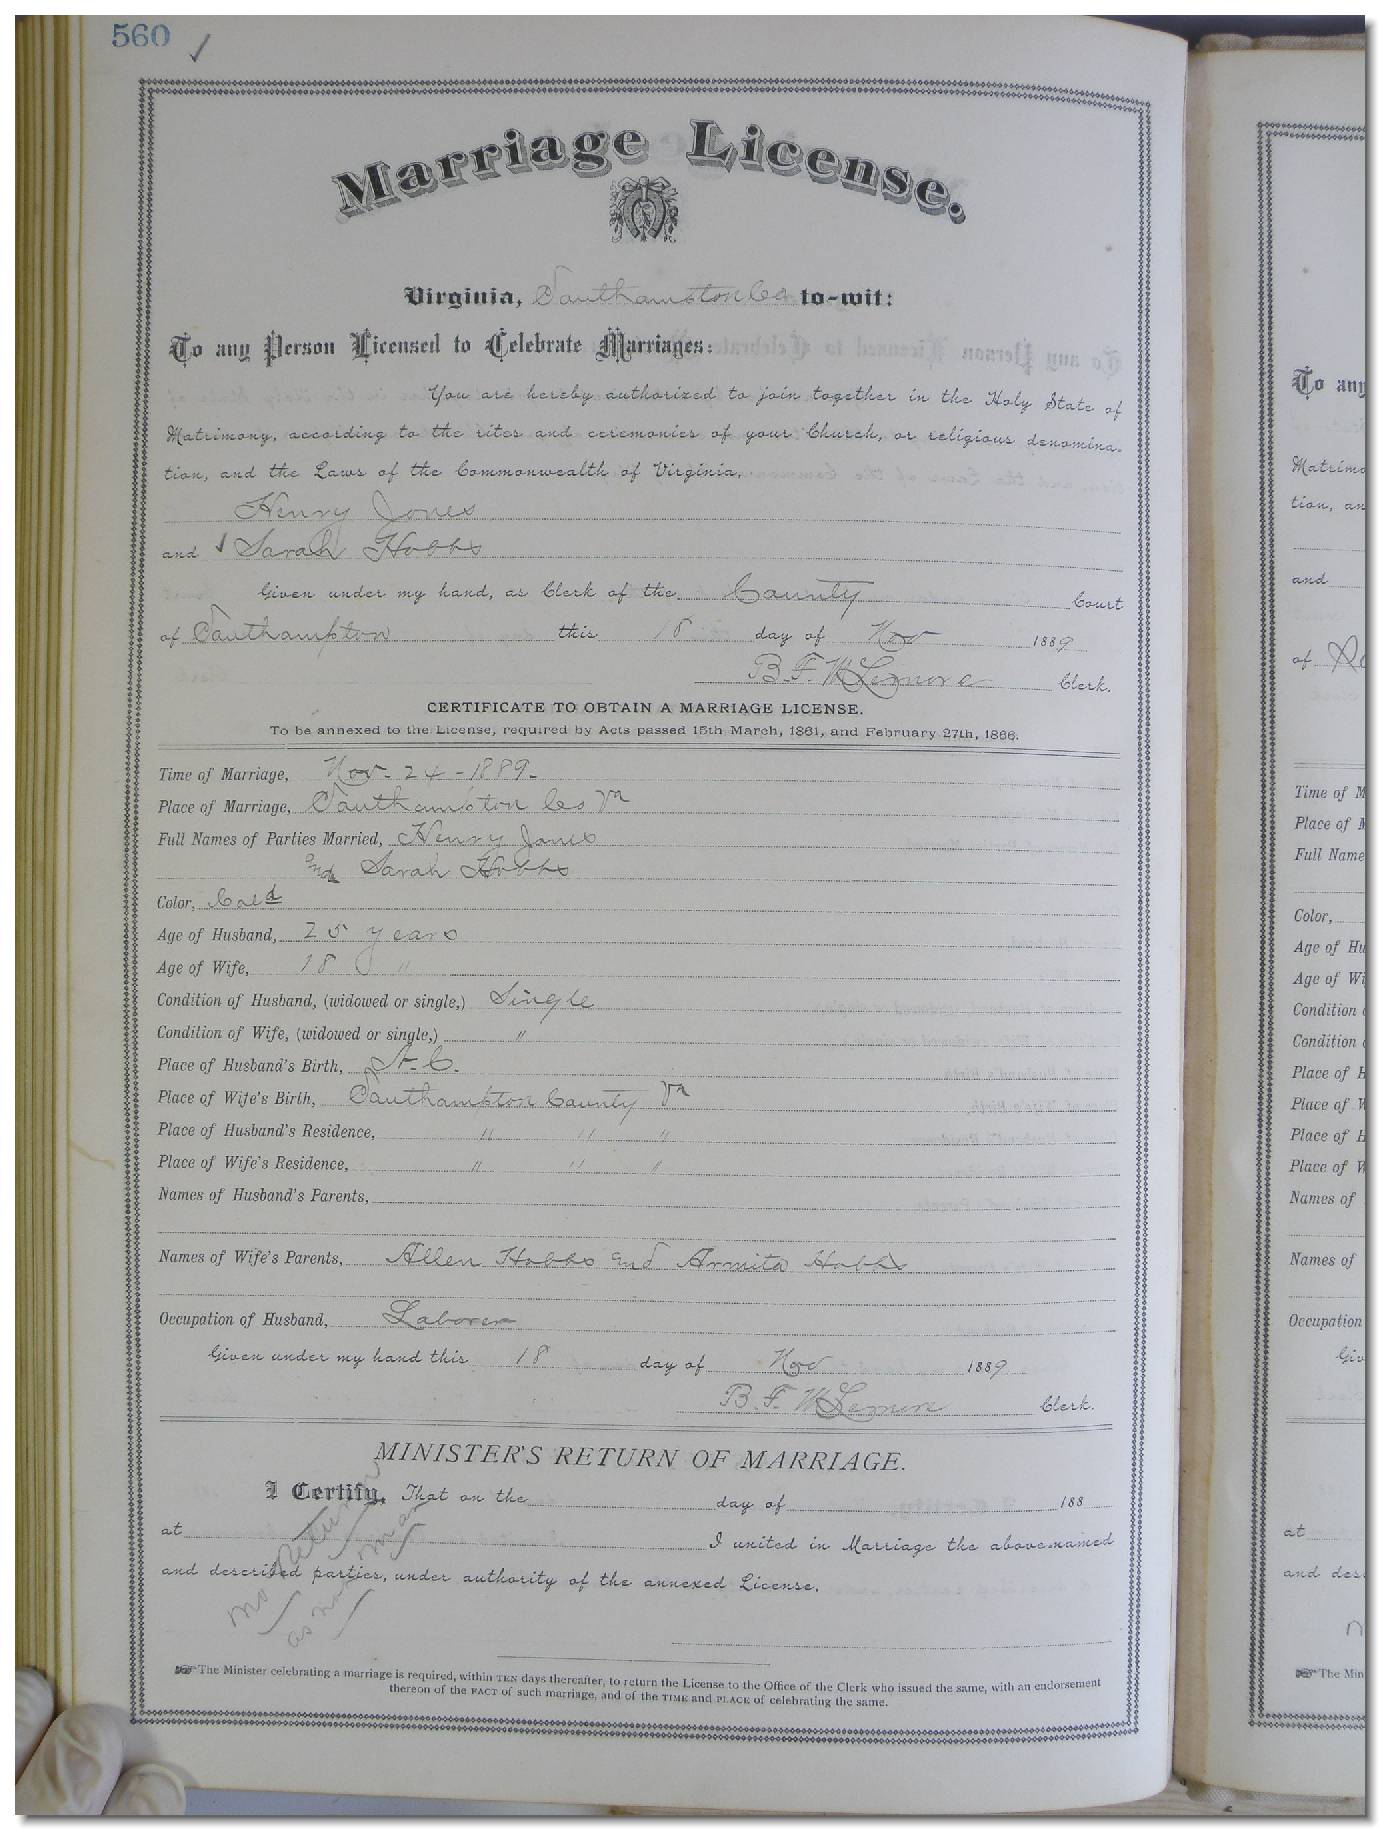 560 ✓
Marriage License.
Virginia, Southampton Co to-wit:
To any Person Licensed to Celebrate Marriages:
You are hereby authorized to join together in the Holy State of
Matrimony, according to the rites and ceremonies of your Church, or religious denomina-
tion, and the Laws of the Commonwealth of Virginia,
Henry Jones
and ✓ Sarah Hobbs
Given under my hand, as Clerk of the County Court
of Southampton this 18 day of Nov 1889
B. F. McLemore Clerk.
CERTIFICATE TO OBTAIN A MARRIAGE LICENSE.
To be annexed to the License, required by Acts passed 15th March, 1861, and February 27th, 1866.
Time of Marriage, Nov - 24 - 1889 -
Place of Marriage, Southampton Co Va
Full Names of Parties Married, Henry Jones
and Sarah Hobbs
Color, Cold
Age of Husband, 25 years
Age of Wife, 18 "
Condition of Husband, (widowed or single,) Single
Condition of Wife, (widowed or single,) "
Place of Husband's Birth, N. C.
Place of Wife's Birth, Southampton County Va
Place of Husband's Residence, " " "
Place of Wife's Residence, " " "
Names of Husband's Parents,
Names of Wife's Parents, Allen Hobbs and Armita Hobbs
Occupation of Husband, Laborer
Given under my hand this 18 day of Nov 1889
B. F. McLemore Clerk.
MINISTER'S RETURN OF MARRIAGE.
I Certify, That on the day of 188
at I united in Marriage the above-named
and described parties, under authority of the annexed License.
no return
as
☞ The Minister celebrating a marriage is required, within TEN days thereafter, to return the License to the Office of the Clerk who issued the same, with an endorsement
thereon of the FACT of such marriage, and of the TIME and PLACE of celebrating the same.
To any
Matrimo
tion, an
and
of
Time of M
Place of M
Full Name
Color,
Age of Hu
Age of Wi
Condition
Condition
Place of H
Place of W
Place of H
Place of W
Names of
Names of
Occupation
Giv
at
and des
☞ The Min